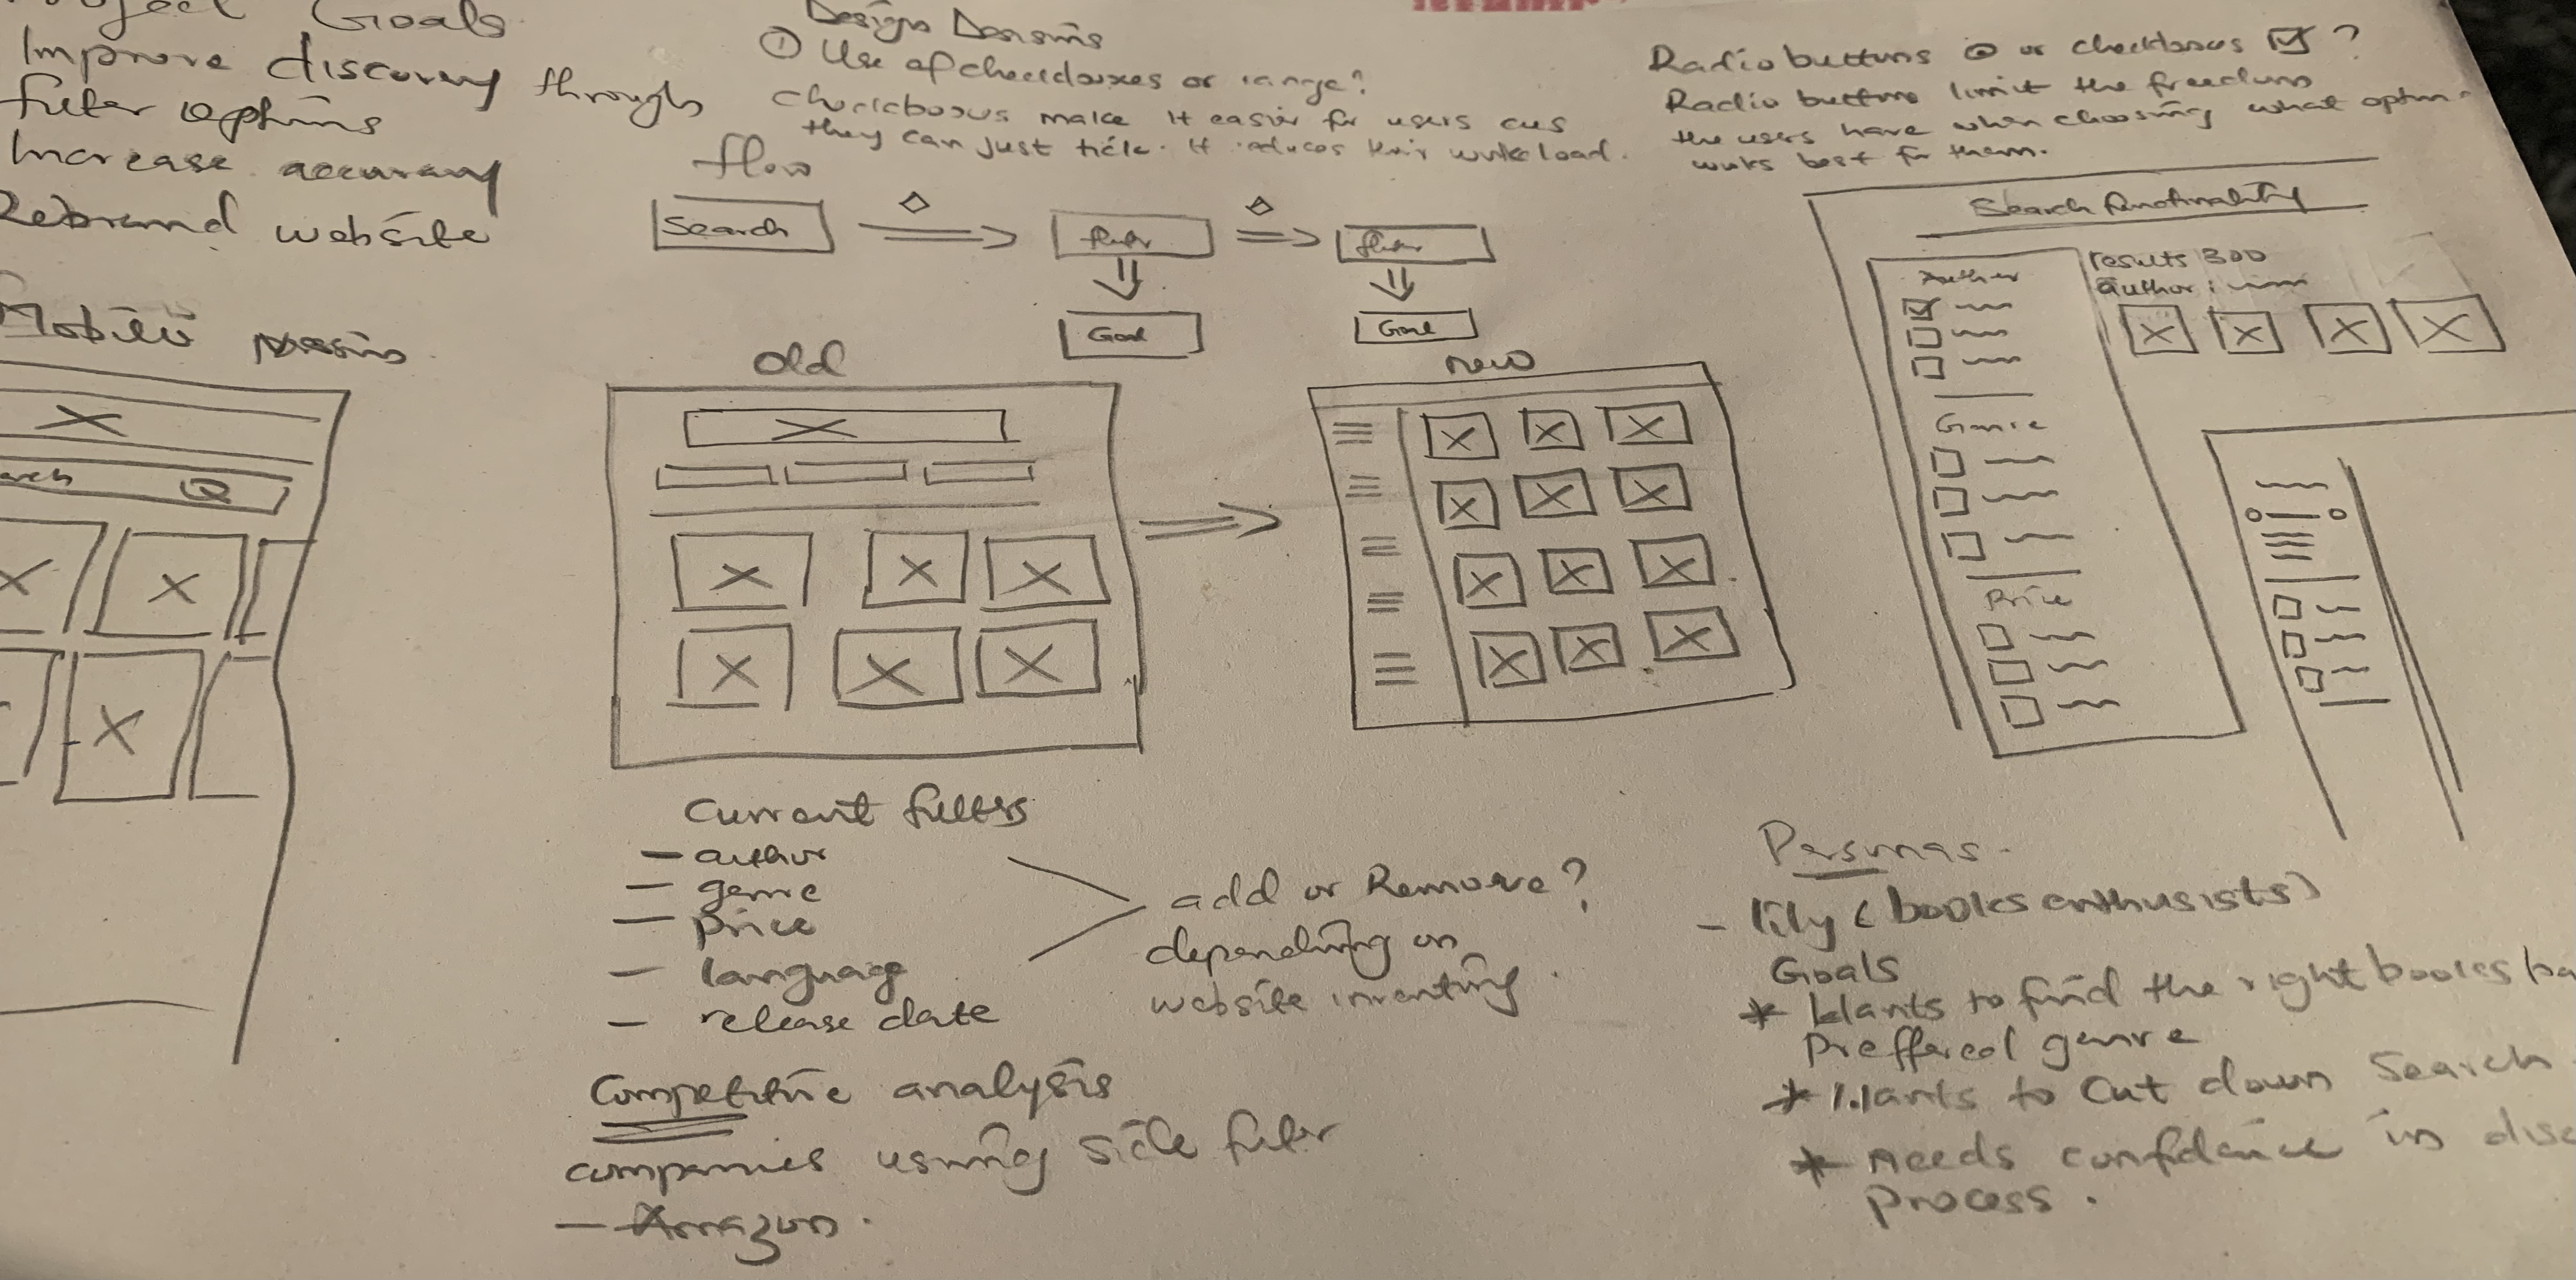 Project Goals
Improve discovery through
filter options
Increase accuracy
Rebrand website
Mobile
arch
Design Decisions
① Use of checkboxes or range?
Checkboxes make it easier for users cus
they can just tick. It reduces their workload.
flow
Search
filter
filter
Goal
Goal
old
new
Radio buttons or checkboxes ?
Radio buttons limit the freedom
the users have when choosing what option
works best for them.
Search functionality
Author
results 300
author :
Genre
Price
Current filters
- author
- genre
- price
- language
- release date
add or Remove?
depending on
website inventory.
Competitive analysis
companies using side filter
- Amazon.
Personas.
- lily (books enthusists)
Goals
* Wants to find the right books ba
Preffered genre
* Wants to Cut down Search
* Needs confidence in disc
process.